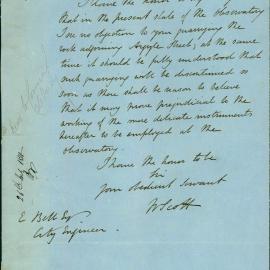 I have the honor to
that in the present state of the Observatory
I see no objection to your quarrying the
rock adjoining Argyle Street, at the same
time it should be fully understood that
such quarrying will be discontinued so
soon as there shall be reason to believe
that it may prove prejudicial to the
working of the more delicate instruments
hereafter to be employed at the
observatory.
I have the honor to be
Sir
Your obedient Servant
W Scott
E Bell Esq
City Engineer.